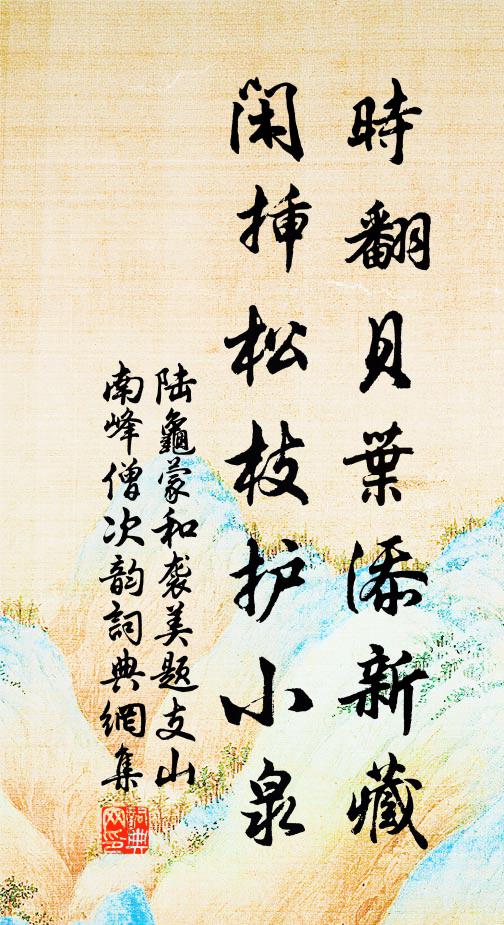 時翻貝葉添新藏
閑挿松枝护小泉
陆龜蒙和袭美题支山
南峰僧次韵詞典網集
詞典
网印